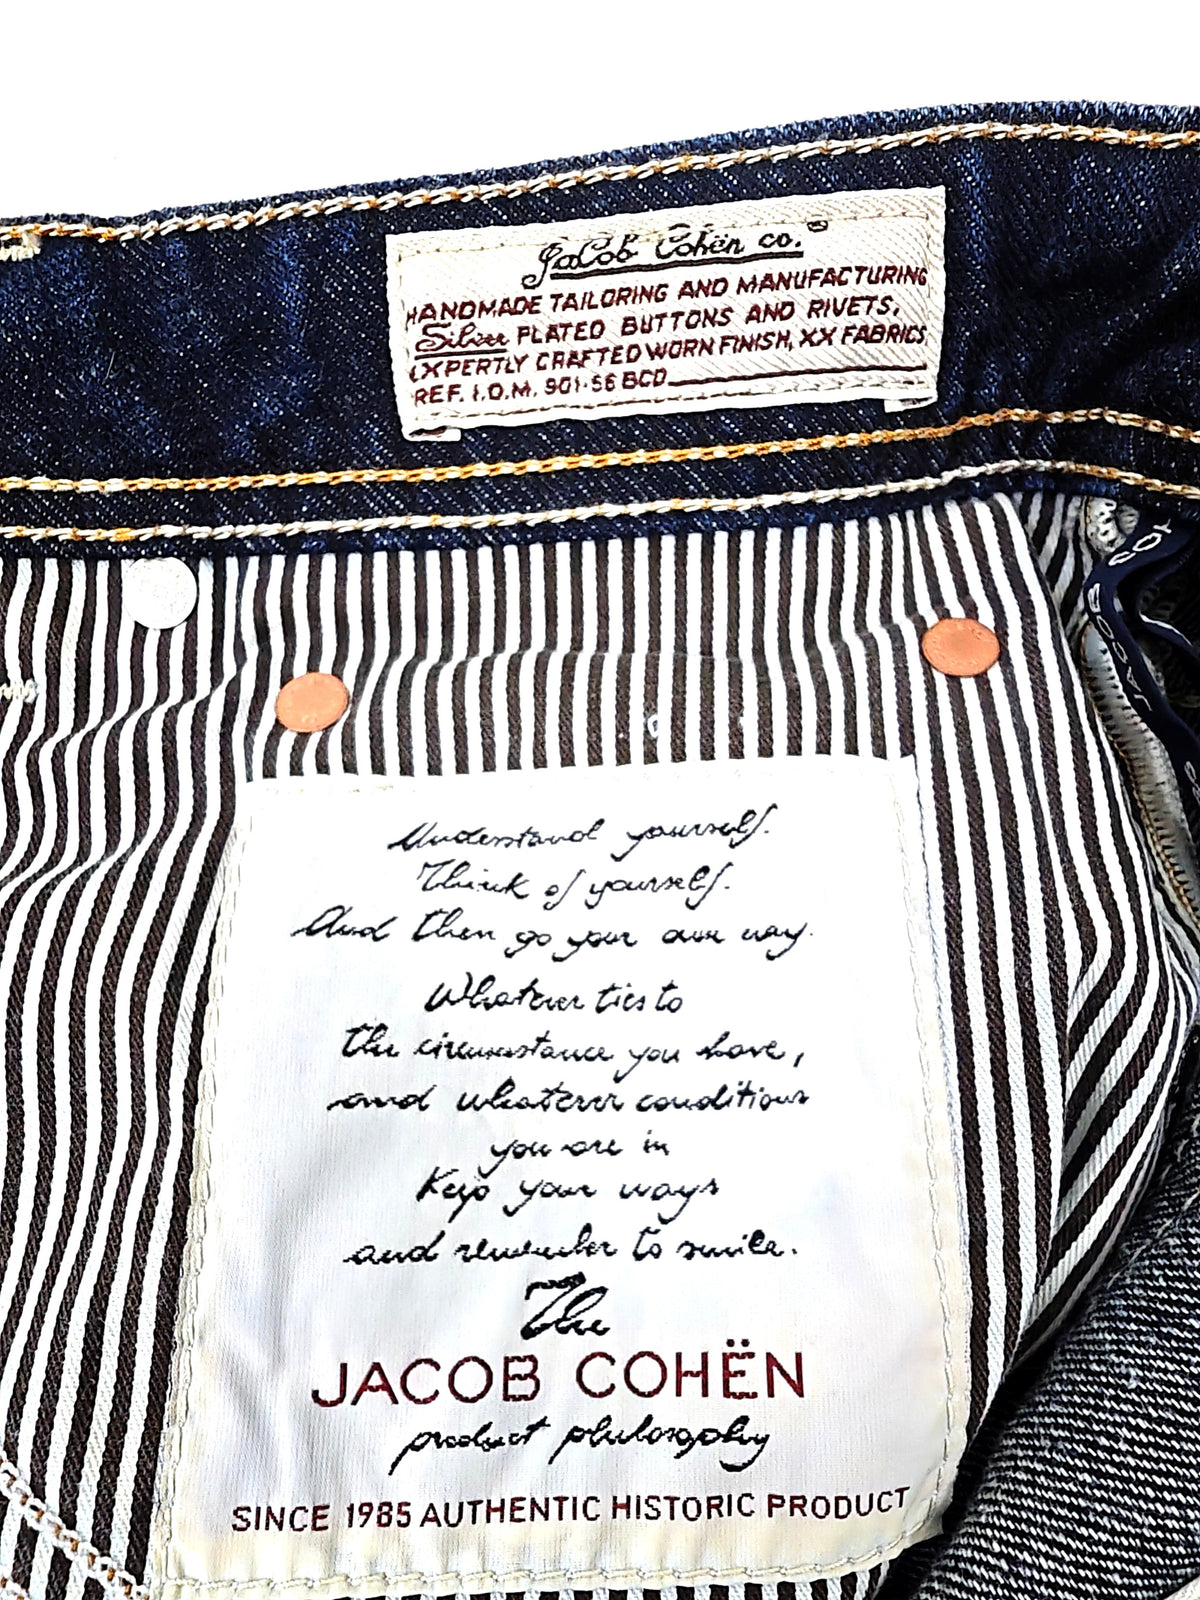 JaCob Cohën co.®
HANDMADE TAILORING AND MANUFACTURING
Silver PLATED BUTTONS AND RIVETS,
EXPERTLY CRAFTED WORN FINISH, XX FABRICS
REF. I.D.M. 901-56 BCD
Understand yourself.
Think of yourself.
And then go your own way.
Whatever ties to
the circumstance you have,
and whatever conditions
you are in
Keep your ways
and remember to smile.
The
JACOB COHËN
product philosophy
SINCE 1985 AUTHENTIC HISTORIC PRODUCT